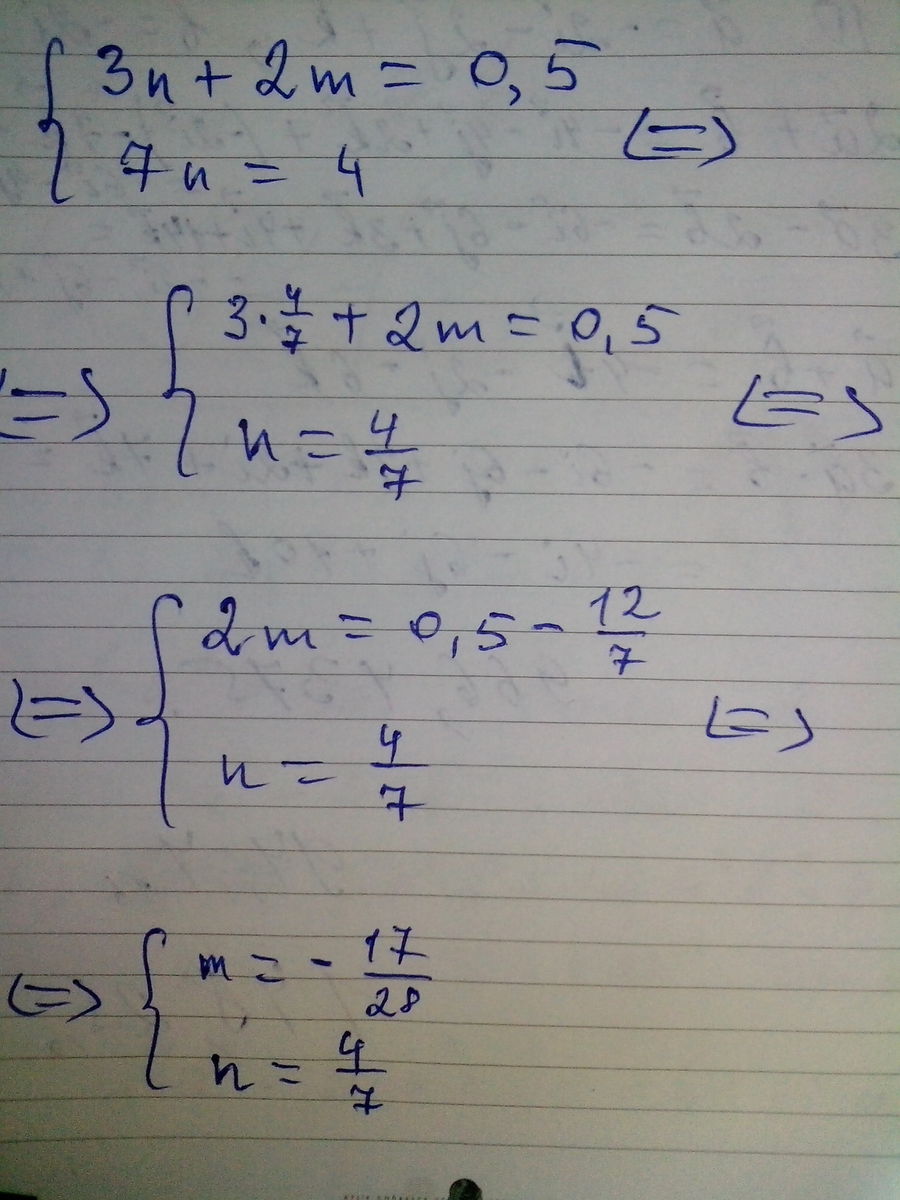 3n + 2m = 0,5
7n = 4 (=)
(=) 3·4/7 + 2m = 0,5
n = 4/7 (=)
(=) 2m = 0,5 - 12/7
n = 4/7 (=)
(=) m = - 17/28
n = 4/7